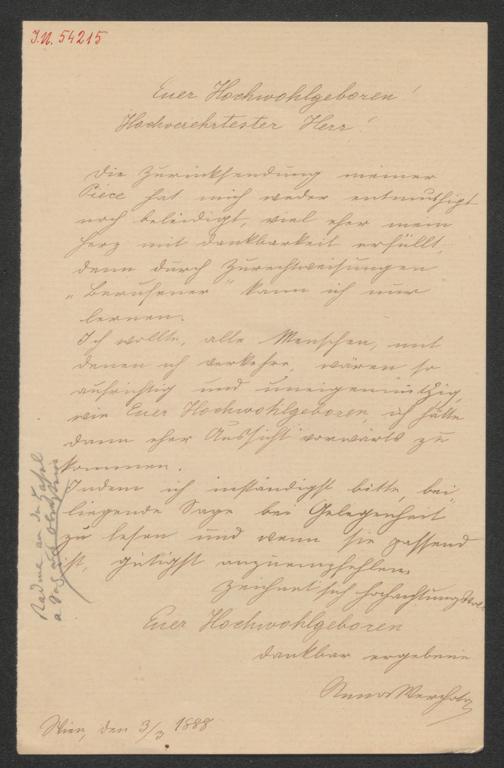 I.N. 54215
Euer Hochwohlgeboren!
Hochverehrtester Herr!
Die Zurücksendung meiner
Piece hat mich weder entmuthigt
noch beleidigt, viel eher mein
Herz mit Dankbarkeit erfüllt,
denn durch Zurechtweisungen
„Berufener" kann ich nur
lernen.
Ich wollte, alle Menschen, mit
denen ich verkehre, wären so
aufrichtig und uneigennützig,
wie Euer Hochwohlgeboren, ich hätte
dann eher Aussicht vorwärts zu
kommen.
Indem ich inständigst bitte, bei-
liegende Sage bei Gelegenheit
zu lesen und wenn sie passend
ist, gütigst anzuempfehlen,
zeichnet sich hochachtungsvoll
Euer Hochwohlgeboren
dankbar ergebene
Anna
Wien, den 3/3 1888
an der